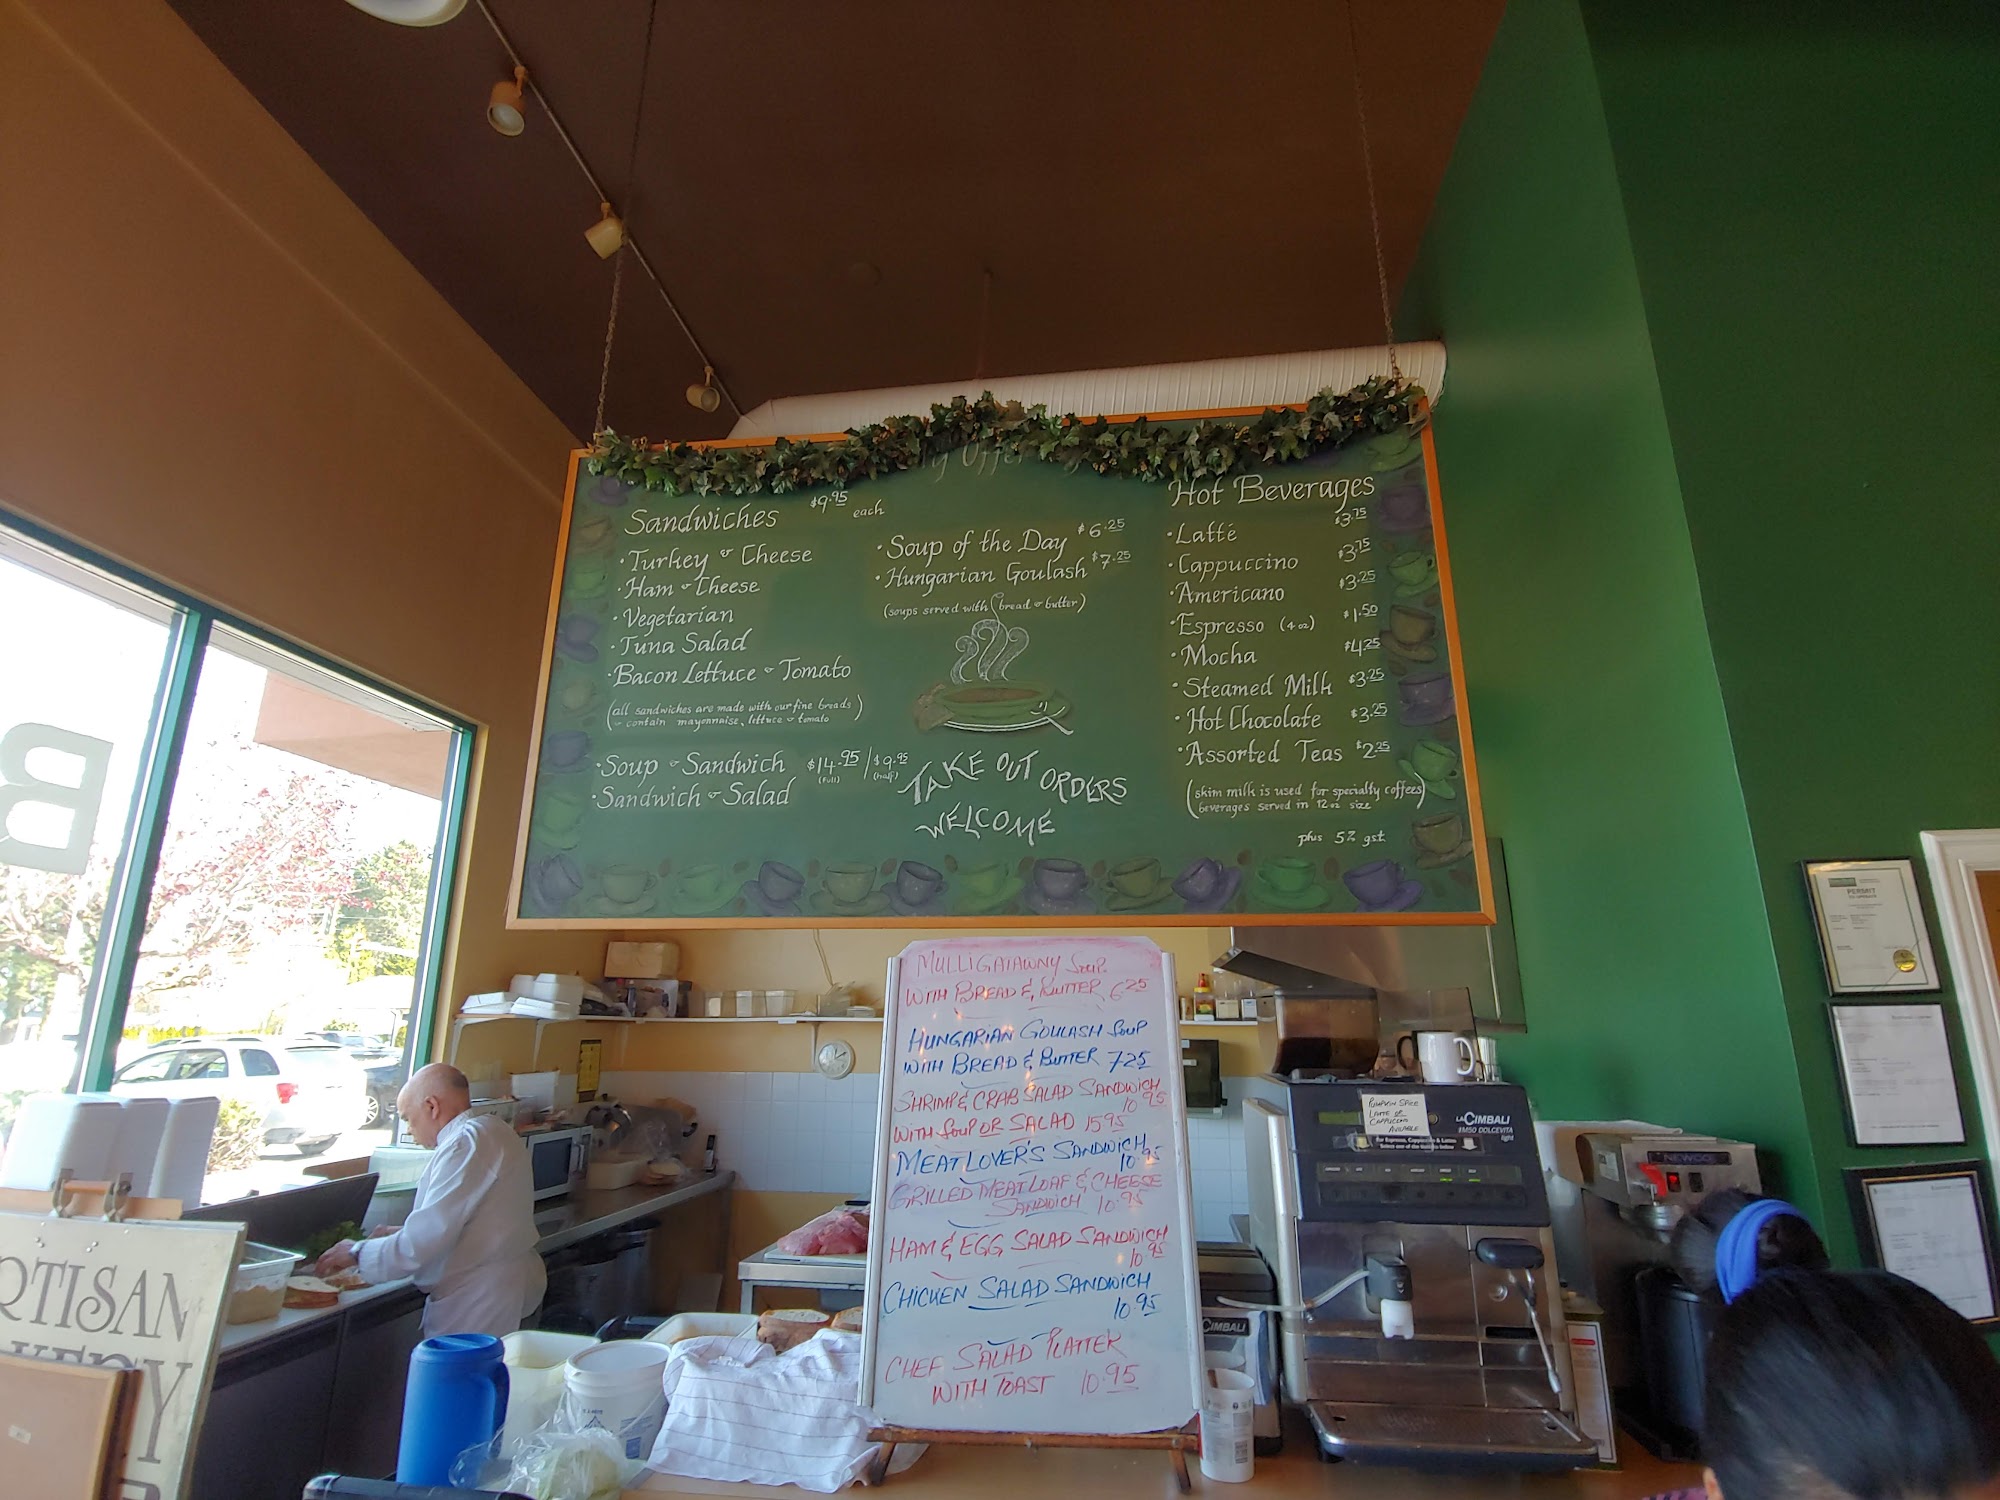 Sandwiches $9.95 each
· Turkey & Cheese
· Ham & Cheese
· Vegetarian
· Tuna Salad
· Bacon Lettuce & Tomato
(all sandwiches are made with our fine breads
& contain mayonnaise, lettuce & tomato)
· Soup & Sandwich $14.95 / $9.95
(full) (half)
· Sandwich & Salad
· Soup of the Day $6.25
· Hungarian Goulash $7.25
(soups served with bread & butter)
TAKE OUT ORDERS
WELCOME
Hot Beverages
· Latté $3.75
· Cappuccino $3.75
· Americano $3.25
· Espresso (4 oz) $1.50
· Mocha $4.25
· Steamed Milk $3.25
· Hot Chocolate $3.25
· Assorted Teas $2.25
(skim milk is used for specialty coffees
beverages served in 12oz size)
plus 5% gst
MULLIGATAWNY SOUP
WITH BREAD & BUTTER 6.25
HUNGARIAN GOULASH SOUP
WITH BREAD & BUTTER 7.25
SHRIMP & CRAB SALAD SANDWICH
10.95
WITH SOUP OR SALAD 15.95
MEATLOVER'S SANDWICH
10.95
GRILLED MEATLOAF & CHEESE
SANDWICH 10.95
HAM & EGG SALAD SANDWICH
10.95
CHICKEN SALAD SANDWICH
10.95
CHEF SALAD PLATTER
WITH TOAST 10.95
B
RTISAN
KERY
PUMPKIN SPICE
LATTE OR
CAPPUCCINO
AVAILABLE
LACIMBALI
M50 DOLCEVITA
light
CIMBALI
NEWCO
PERMIT